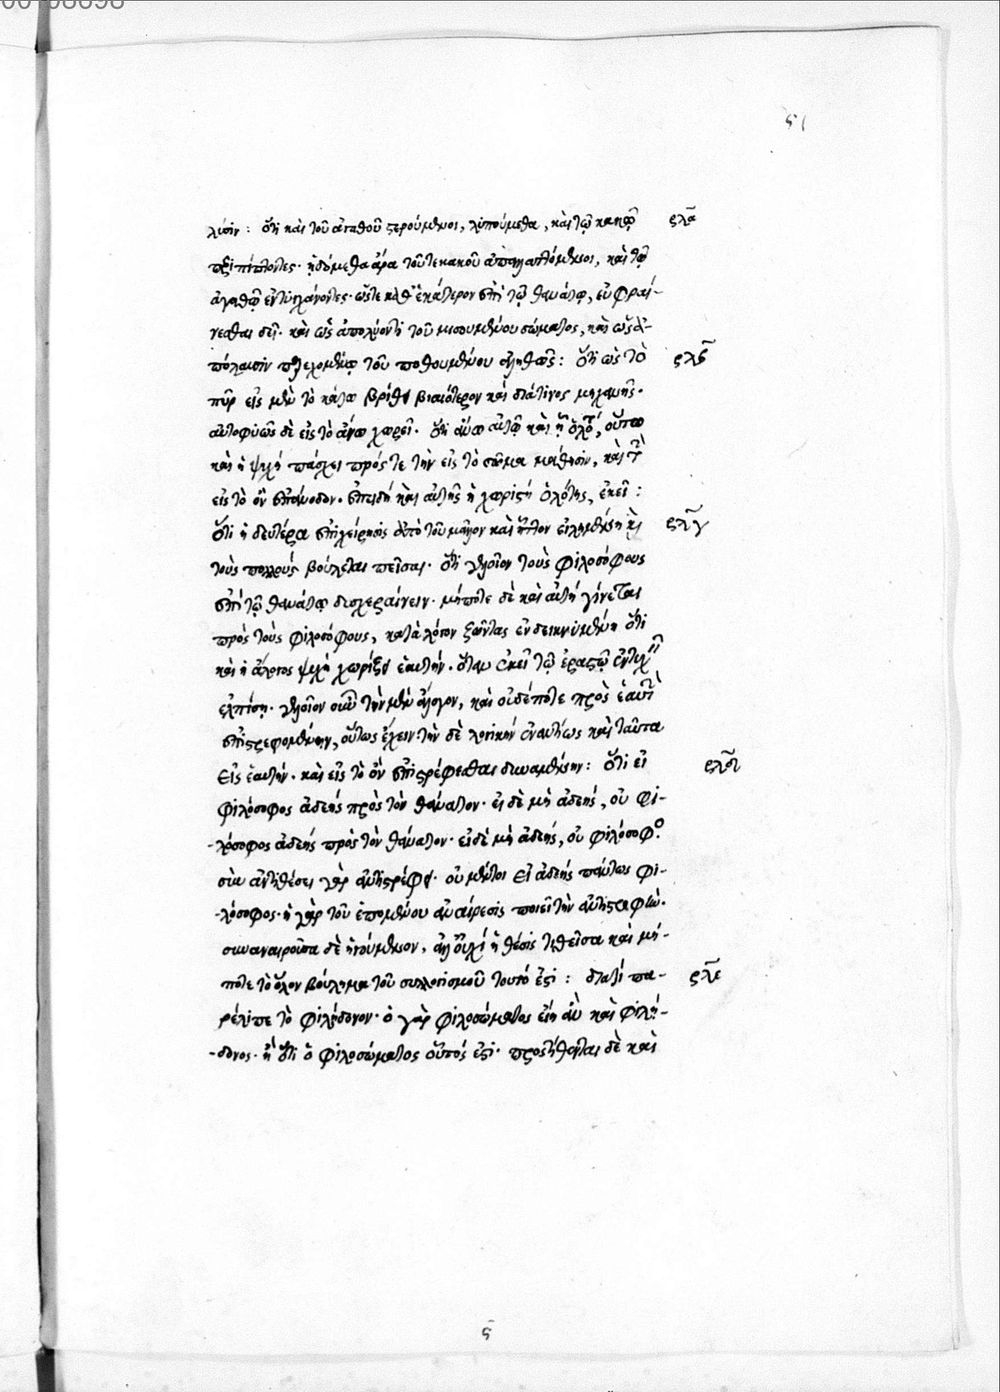 51
λύσιν : ὅτι καὶ τοῦ ἀγαθοῦ στερούμενοι, λυπούμεθα, καὶ τῷ κακῷ ρλα
περιπίπτοντες· ἡδόμεθα ἄρα τοῦ τε κακοῦ ἀπαλλαττόμενοι, καὶ τῷ
ἀγαθῷ ἐντυγχάνοντες· ὥστε καθ' ἑκάτερον ἐπὶ τῷ θανάτῳ, εὐφραί-
νεσθαι δεῖ· καὶ ὡς ἀπολύοντι τοῦ μισουμένου σώματος, καὶ ὡς ἀ-
πόλαυσιν τοῦ ποθουμένου ἀληθῶς : ὅτι ὡς τὸ ρλβ
πῦρ εἰς μὲν τὸ κάτω βρίθει βιαιότερον καὶ διά τινος μηχανῆς·
αὐτοφυῶς δὲ εἰς τὸ ἄνω χωρεῖ· ὅτι ἄνω αὐτῷ καὶ ἡ ὁλότης, οὕτω
καὶ ἡ ψυχὴ πάσχει πρός τε τὴν εἰς τὸ σῶμα καὶ τὴν
εἰς τὸ ὂν ἐπάνοδον· ἐπειδὴ καὶ αὐτῆς ἡ χωριστὴ ὁλότης, ἐκεῖ :
ὅτι ἡ δευτέρα ἐπιχείρησις ἀπὸ τοῦ μᾶλλον καὶ ἧττον εἰλημμένη καὶ ρλγ
τοὺς πολλοὺς βούλεται πεῖσαι· ὅτι γελοῖον τοὺς φιλοσόφους
ἐπὶ τῷ θανάτῳ δυσχεραίνειν· μήποτε δὲ καὶ αὐτὴ γίνεται
πρὸς τοὺς φιλοσόφους, κατὰ λόγον ζῶντας ἐνδεικνυμένη ὅτι
καὶ ἡ ἄλογος ψυχὴ χωρίζει ἑαυτήν· ὅταν ἐκεῖ τῷ ἐραστῷ ἐντυχεῖν
ἐλπίσῃ· γελοῖον οὖν τὴν μὲν ἄλογον, καὶ οὐδέποτε πρὸς ἑαυτὴν
ἐπιστρεφομένην, οὕτως ἔχειν· τὴν δὲ λογικὴν ἐναντίως καὶ ταῦτα
εἰς ἑαυτήν· καὶ εἰς τὸ ὂν ἐπιστρέφεσθαι δυναμένην : ὅτι εἰ ρλδ
φιλόσοφος ἀδεὴς πρὸς τὸν θάνατον· εἰ δὲ μὴ ἀδεής, οὐ φι-
-λόσοφος ἀδεὴς πρὸς τὸν θάνατον· εἰ δὲ μὴ ἀδεής, οὐ φιλόσοφος·
σὺν ἀντιθέσει γὰρ ἀντιστρέφει· οὐ μέντοι εἰ ἀδεὴς πάντως φι-
-λόσοφος· ἡ γὰρ τοῦ ἑπομένου ἀναίρεσις ποιεῖ τὴν ἀντιστροφήν·
συναναιροῦσα δὲ ἡγούμενον, ἀλλ' οὐχὶ ἡ θέσις τιθεῖσα καὶ μή-
ποτε τὸ ὅλον βούλημα τοῦ συλλογισμοῦ τοῦτό ἐστι : διατί πα- ρλε
ρέλιπε τὸ φιλήδονον· ὁ γὰρ φιλοσώματος εἴη ἂν καὶ φιλή-
-δονος· ἢ ὅτι ὁ φιλοσώματος οὗτός ἐστι· προστίθενται δὲ καὶ
ς